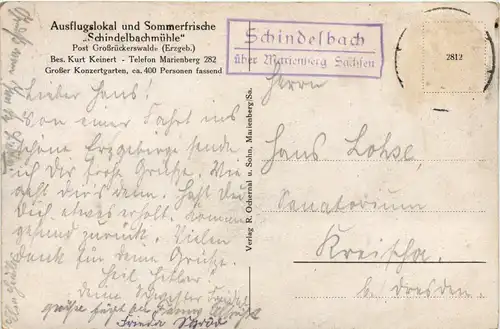 Ausflugslokal und Sommerfrische
„Schindelbachmühle"
Post Großrückerswalde (Erzgeb.)
Bes. Kurt Keinert - Telefon Marienberg 282
Großer Konzertgarten, ca. 400 Personen fassend
Schindelbach
über Marienberg Sachsen
2812
Lieber Hans!
Von einer Fahrt ins
schöne Erzgebirge sende
ich Dir frohe Grüße. Wie
geht dir's denn. Hast Du
Dich etwas erholt. Komme
gesund zurück. Vielen
Dank für deine Grüße.
Heil Hitler!
Deine Schwester
Grüße fügt bei
Verlag R. Ochernal u. Sohn, Marienberg/Sa.
Herrn
Hans Lohse
Sanatorium
Kreischa.
b. Dresden.